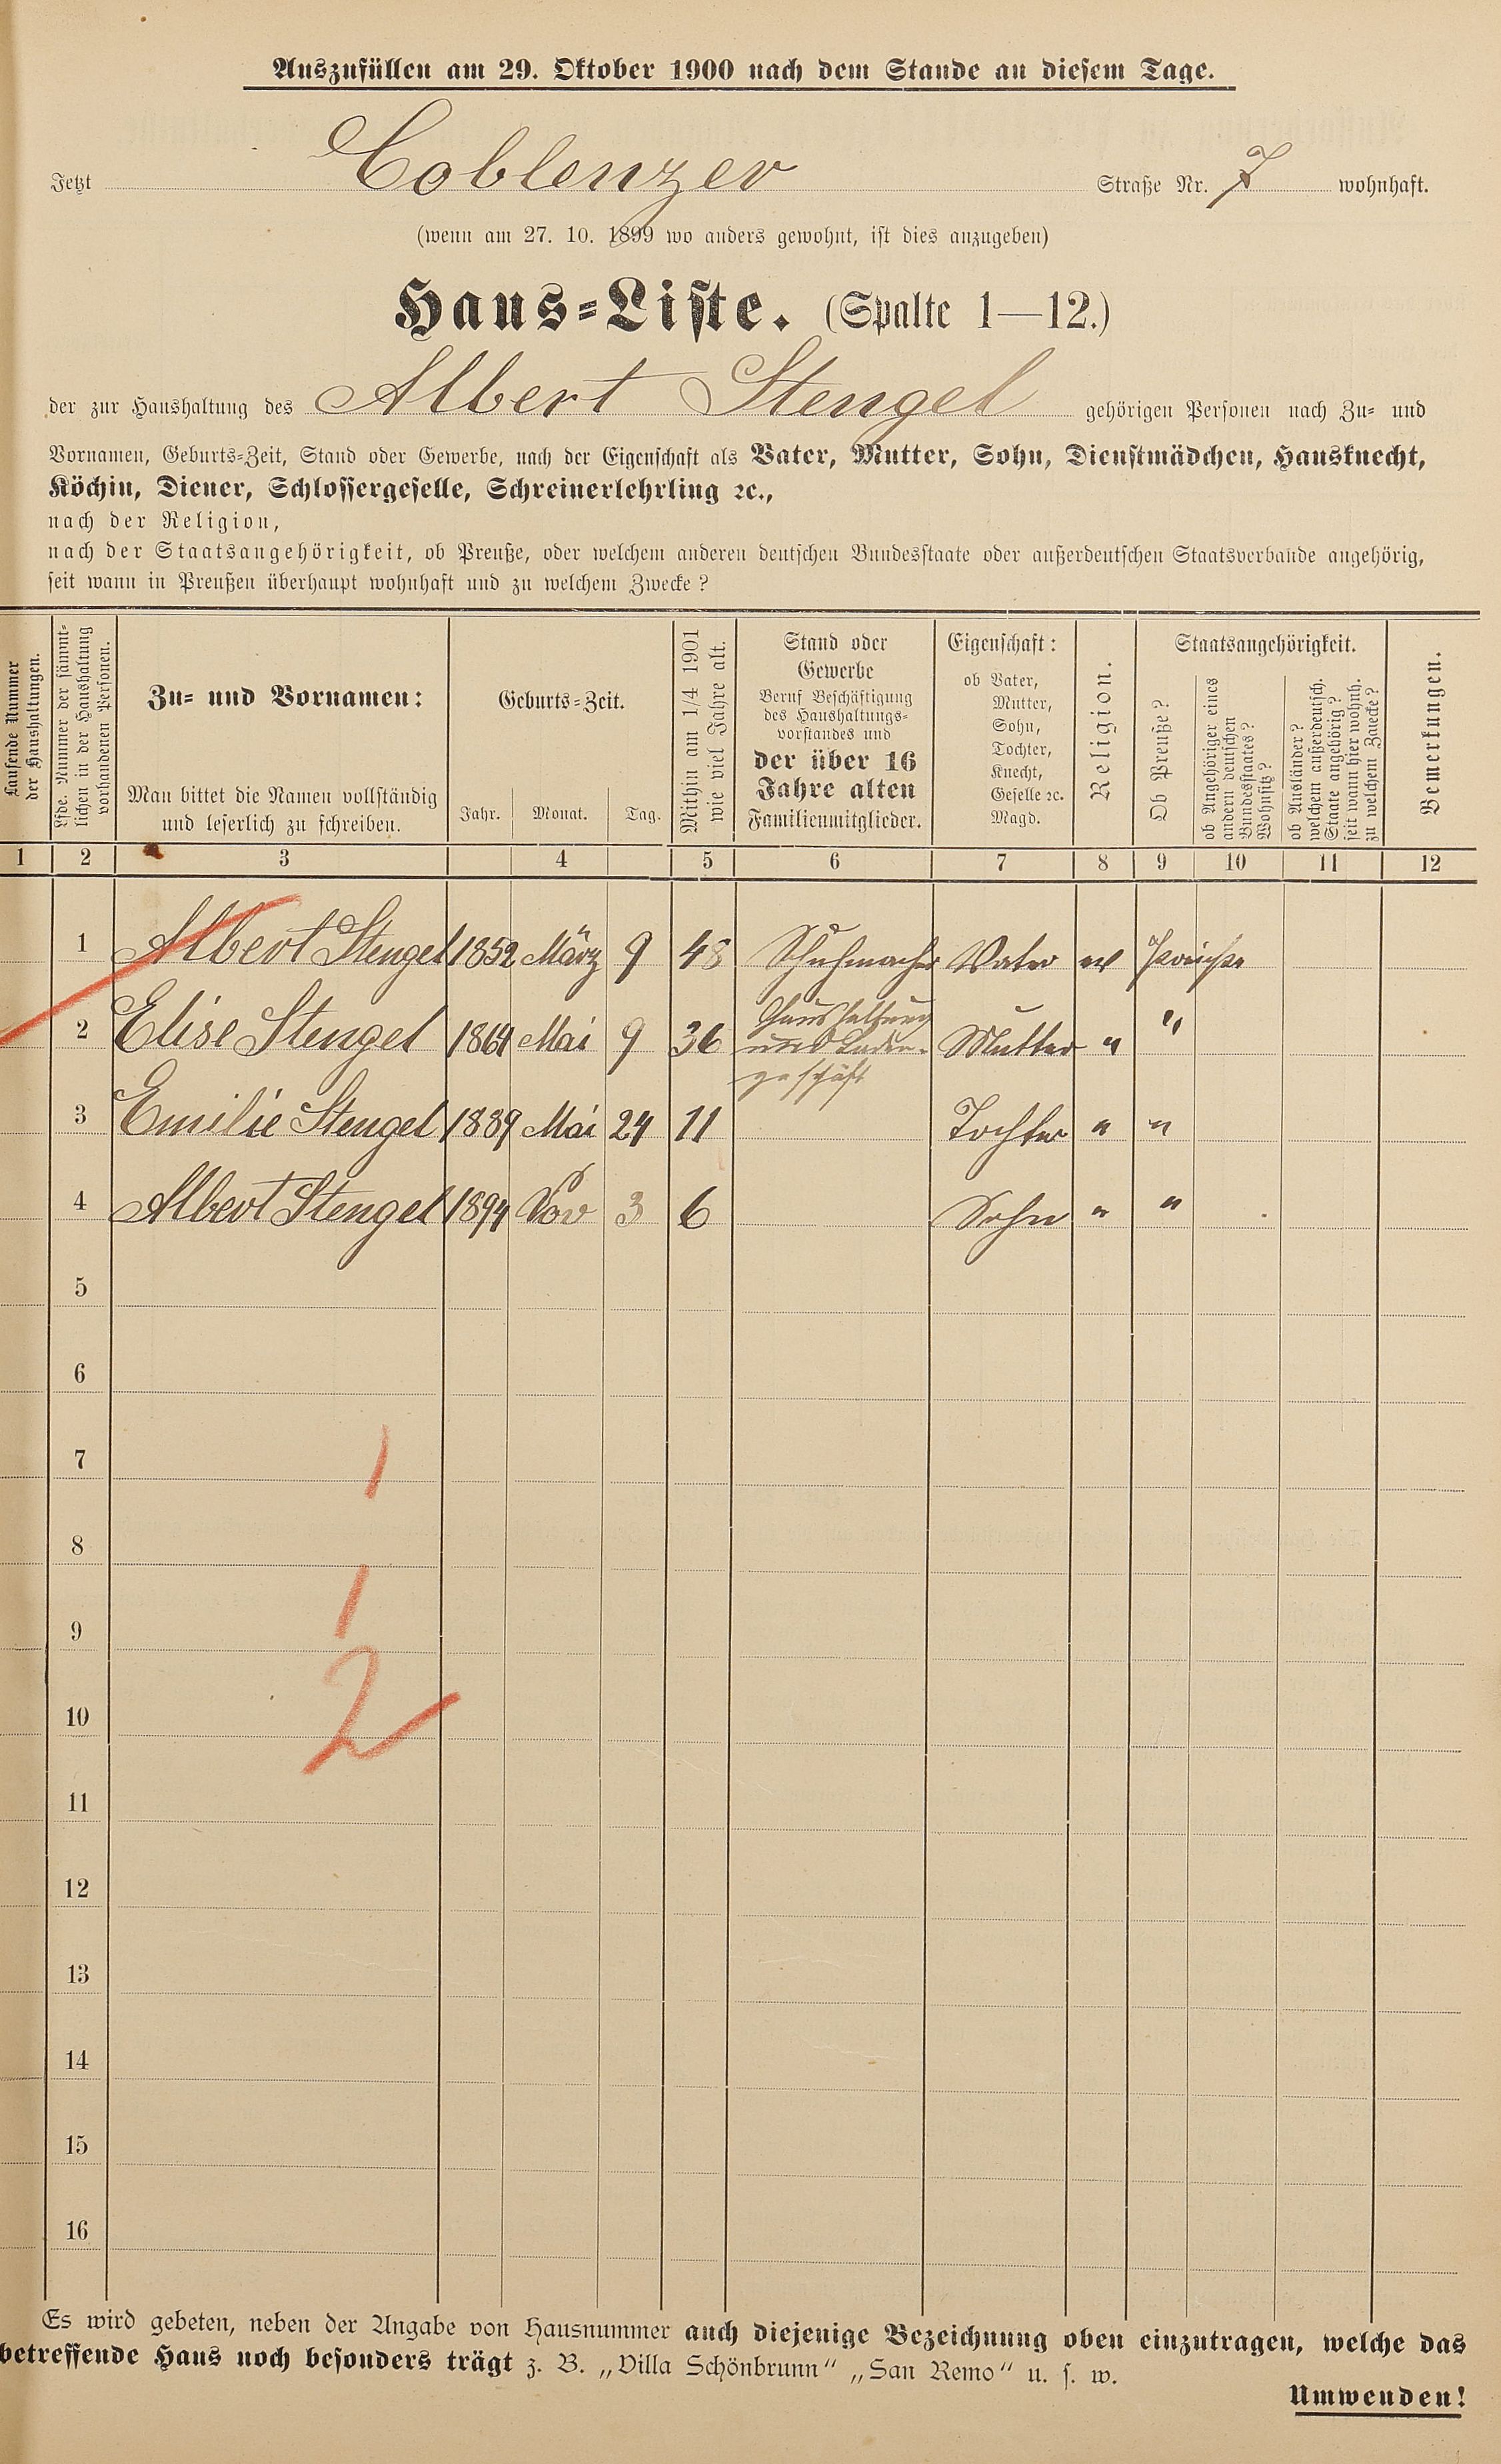 Auszufüllen am 29. Oktober 1900 nach dem Stande an diesem Tage.
Jetzt Coblenzer Straße Nr. 7 wohnhaft.
(wenn am 27. 10. 1899 wo anders gewohnt, ist dies anzugeben)
Haus=Liste. (Spalte 1—12.)
der zur Haushaltung des Albert Stengel gehörigen Personen nach Zu= und
Vornamen, Geburts=Zeit, Stand oder Gewerbe, nach der Eigenschaft als Vater, Mutter, Sohn, Dienstmädchen, Hausknecht,
Köchin, Diener, Schlossergeselle, Schreinerlehrling ꝛc.,
nach der Religion,
nach der Staatsangehörigkeit, ob Preuße, oder welchem anderen deutschen Bundesstaate oder außerdeutschen Staatsverbande angehörig,
seit wann in Preußen überhaupt wohnhaft und zu welchem Zwecke?
Laufende Nummer
der Haushaltungen.
Lfde. Nummer der sämmt-
lichen in der Haushaltung
vorhandenen Personen.
Zu= und Vornamen:
Man bittet die Namen vollständig
und leserlich zu schreiben.
Geburts=Zeit.
Jahr. Monat. Tag.
Mithin am 1/4 1901
wie viel Jahre alt.
Stand oder
Gewerbe
Beruf Beschäftigung
des Haushaltungs-
vorstandes und
der über 16
Jahre alten
Familienmitglieder.
Eigenschaft:
ob Vater,
Mutter,
Sohn,
Tochter,
Knecht,
Geselle ꝛc.
Magd.
Religion.
Staatsangehörigkeit.
Ob Preuße?
ob Angehöriger eines
andern deutschen
Bundesstaates?
Wohnsitz?
ob Ausländer?
welchem außerdeutsch.
Staate angehörig?
seit wann hier wohnh.
zu welchem Zwecke?
Bemerkungen.
1 2 3 4 5 6 7 8 9 10 11 12
1 Albert Stengel 1852 März 9 48 Schuhmacher Vater ev Preuße
2 Elise Stengel 1864 Mai 9 36 Haushaltung und Laden-geschäft Mutter " "
3 Emilie Stengel 1889 Mai 24 11 Tochter " "
4 Albert Stengel 1894 Nov 3 6 Sohn " "
5
6
7
1
8
1
9
2
10
11
12
13
14
15
16
Es wird gebeten, neben der Angabe von Hausnummer auch diejenige Bezeichnung oben einzutragen, welche das
betreffende Haus noch besonders trägt z. B. „Villa Schönbrunn" „San Remo" u. s. w.
Umwenden!